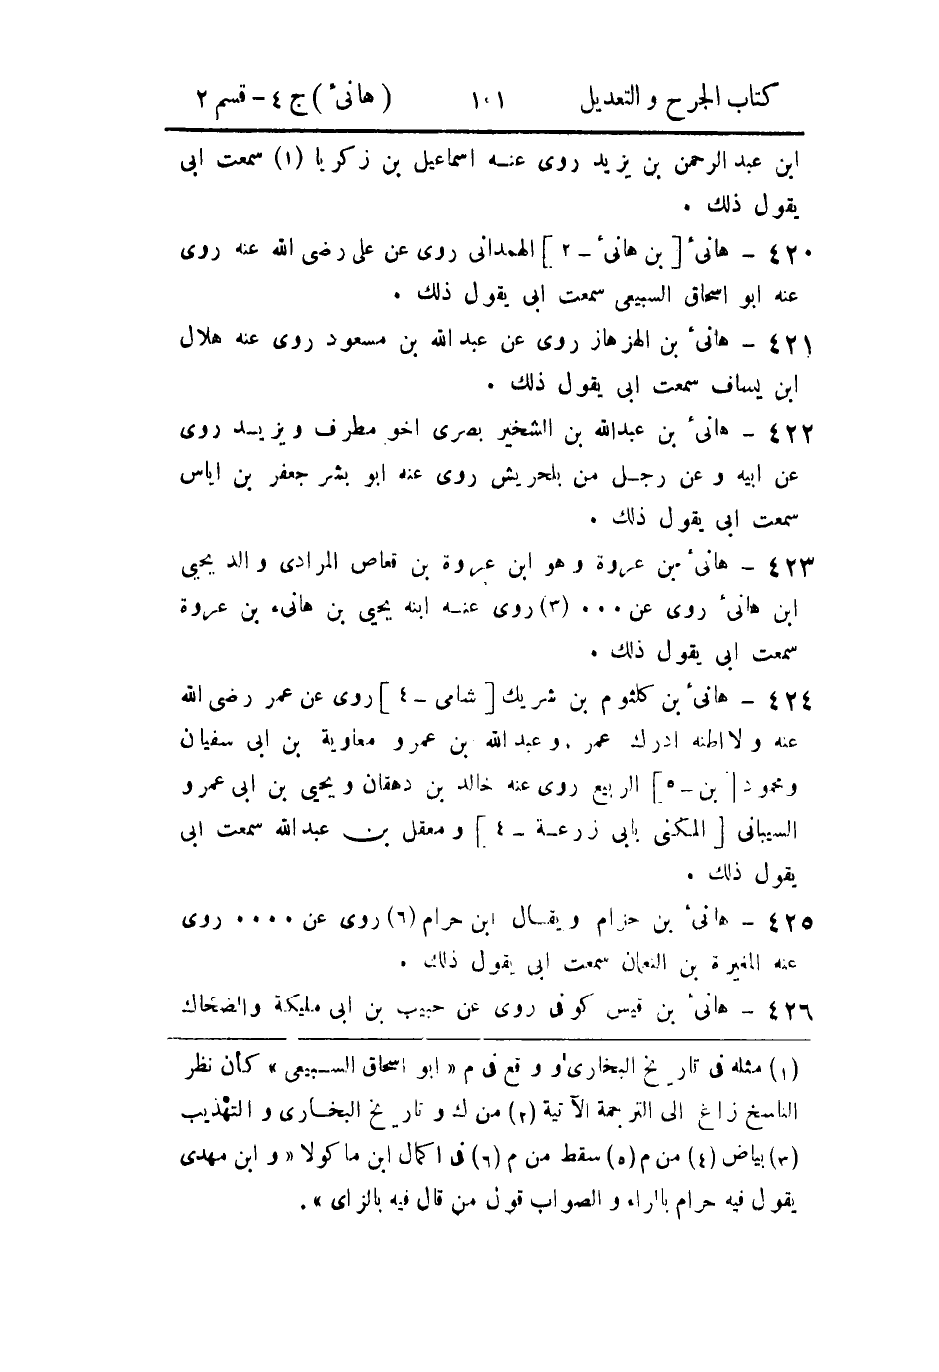 كتاب الجرح و التعديل ١٠١ ( هانئ ) ج ٤ - قسم ٢
ابن عبد الرحمن بن يزيد روى عنه اسماعيل بن زكريا (١) سمعت ابى
يقول ذلك .
٤٢٠ - هانئ [ بن هانئ - ٢ ] الهمدانى روى عن على رضى الله عنه روى
عنه ابو اسحاق السبيعى سمعت ابى يقول ذلك .
٤٢١ - هانئ بن الهزهاز روى عن عبد الله بن مسعود روى عنه هلال
ابن يساف سمعت ابى يقول ذلك .
٤٢٢ - هانئ بن عبدالله بن الشخير بصرى اخو مطرف و يزيد روى
عن ابيه و عن رجل من بلحريش روى عنه ابو بشر جعفر بن اياس
سمعت ابى يقول ذلك .
٤٢٣ - هانئ بن عروة و هو ابن عروة بن قعاص المرادى و الد يحيى
ابن هانئ روى عن ٠٠٠ (٣) روى عنه ابنه يحيى بن هانىء بن عروة
سمعت ابى يقول ذلك .
٤٢٤ - هانئ بن كلثوم بن شريك [ شامى - ٤ ] روى عن عمر رضى الله
عنه و لا اظنه ادرك عمر . و عبد الله بن عمرو معاوية بن ابى سفيان
ومحمود [ بن - ٥ ] الربيع روى عنه خالد بن دهقان و يحيى بن ابى عمرو
السيبانى [ المكنى بابى زرعة - ٤ ] و معقل بن عبدالله سمعت ابى
يقول ذلك .
٤٢٥ - هانئ بن حزام و يقال ابن حرام (٦) روى عن ٠٠٠٠ روى
عنه المغيرة بن النعمان سمعت ابى يقول ذلك .
٤٢٦ - هانئ بن قيس كوفى روى عن حبيب بن ابى مليكة والضحاك
(١) مثله فى تاريخ البخارى و و قع فى م « ابو اسحاق السبيعى » كأن نظر
الناسخ زاغ الى الترجمة الآتية (٢) من ك و تاريخ البخارى و التهذيب
(٣) بياض (٤) من م (٥) سقط من م (٦) فى اكمال ابن ماكولا « و ابن مهدى
يقول فيه حرام بالراء و الصواب قول من قال فيه بالزاى » .